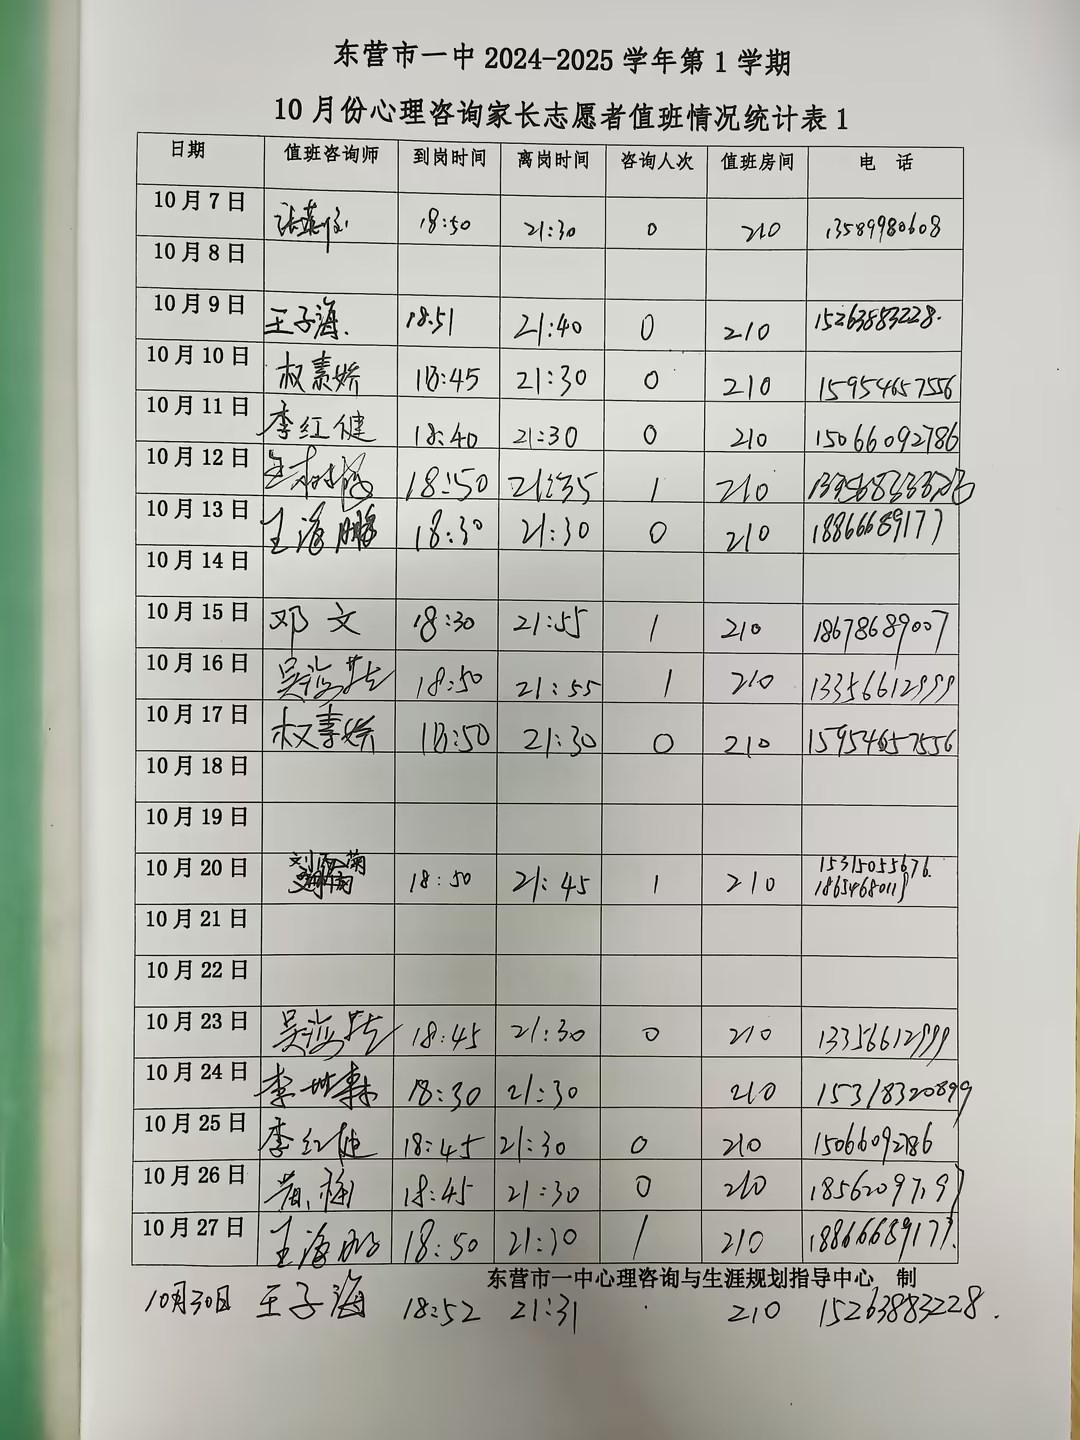 东营市一中 2024-2025 学年第 1 学期
10 月份心理咨询家长志愿者值班情况统计表 1
日期 值班咨询师 到岗时间 离岗时间 咨询人次 值班房间 电 话
10 月 7 日 18:50 21:30 0 210 13589980608
10 月 8 日
10 月 9 日 王子海. 18:51 21:40 0 210 15263883228.
10 月 10 日 权素娇 18:45 21:30 0 210 15954657556
10 月 11 日 李红健 18:40 21:30 0 210 15066092786
10 月 12 日 18:50 21:35 1 210
10 月 13 日 王海鹏 18:30 21:30 0 210 18866689177
10 月 14 日
10 月 15 日 邓文 18:30 21:55 1 210 18678689007
10 月 16 日 吴海 18:50 21:55 1 210 13356612999
10 月 17 日 权素娇 18:50 21:30 0 210 15954657556
10 月 18 日
10 月 19 日
10 月 20 日 18:50 21:45 1 210 15315055676.
1865468011
10 月 21 日
10 月 22 日
10 月 23 日 吴海 18:45 21:30 0 210 13356612999
10 月 24 日 李世森 18:30 21:30 210 15318320899
10 月 25 日 李红健 18:45 21:30 0 210 15066092786
10 月 26 日 18:45 21:30 0 210 18562097197
10 月 27 日 王海鹏 18:50 21:30 1 210 18866689177.
东营市一中心理咨询与生涯规划指导中心 制
10月30日 王子海 18:52 21:31 210 15263883228.